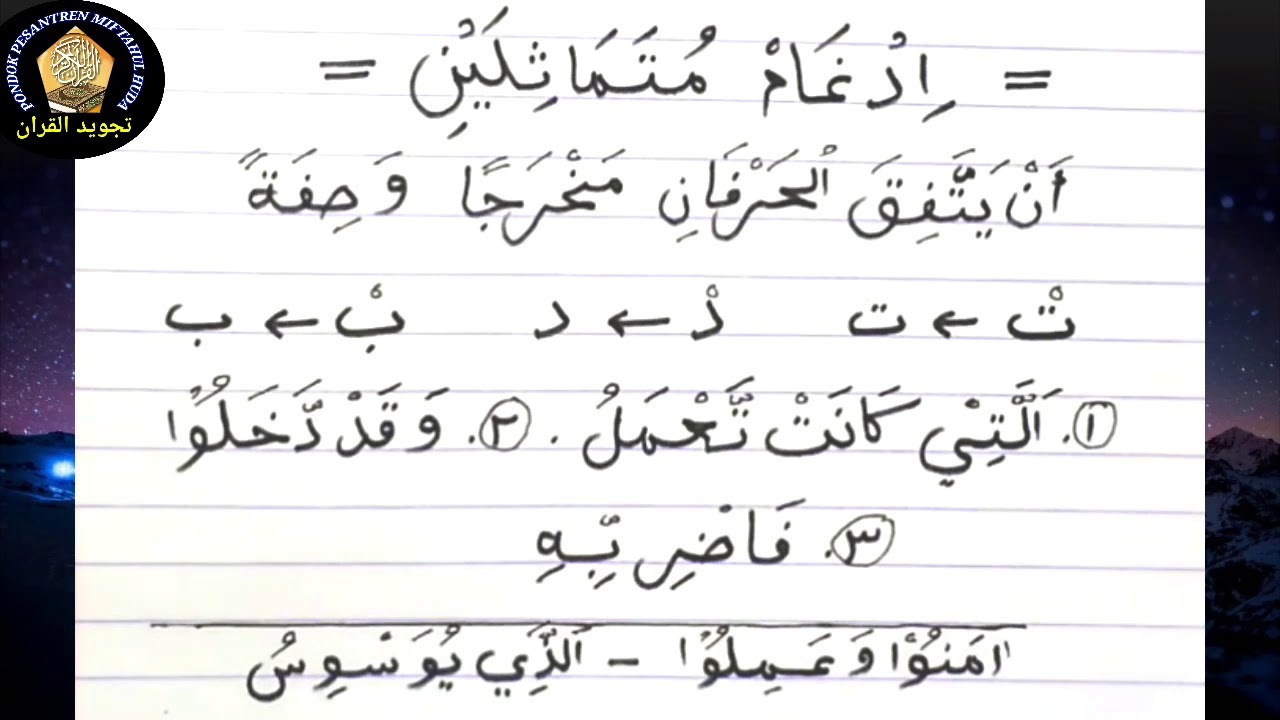 PONDOK PESANTREN MIFTAHUL HUDA
تجويد القران
= اِدْغَامْ مُتَمَاثِلَيْنِ =
أَنْ يَتَّفِقَ الْحَرْفَانِ مَخْرَجًا وَصِفَةً
تْ ← ت دْ ← د بْ ← ب
١. اَلَّتِيْ كَانَتْ تَّعْمَلُ . ٢. وَقَدْ دَّخَلُوْا
٣. فَاضْرِبْ بِّهِ
اٰمَنُوْا وَعَمِلُوْا - الَّذِيْ يُوَسْوِسُ